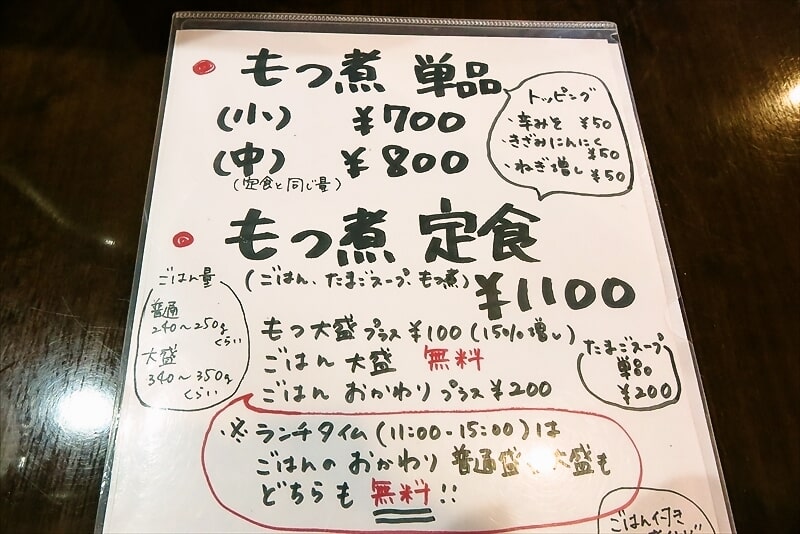 もつ煮 単品
(小) ¥700
(中) ¥800
(定食と同じ量)
トッピング
・辛みそ ¥50
・きざみにんにく
¥50
・ねぎ増し ¥50
もつ煮 定食
(ごはん、たまごスープ、もつ煮)
¥1100
ごはん量
普通
240〜250g
くらい
大盛
340〜350g
くらい
もつ大盛 プラス ¥100 (15%増し)
ごはん 大盛 無料
ごはん おかわり プラス ¥200
たまごスープ
単品
¥200
※ランチタイム (11:00-15:00) は
ごはんの おかわり 普通盛 大盛も
どちらも 無料!!
ごはん付き